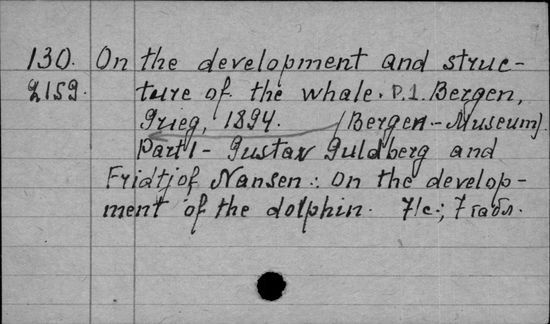 130. On the development and struc-
2159. ture of the whale. P.1. Bergen,
Grieg, 1894. (Bergen-Museum).
Part 1 - Gustav Guldberg and
Fridtjof Nansen: On the develop-
ment of the dolphin. 71c.; 7 табл.